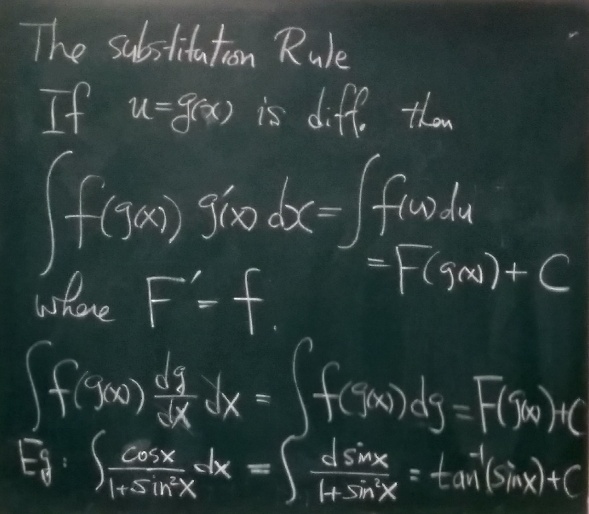 The substitution Rule
If u=g(x) is diff. then
∫f(g(x)) g'(x) dx = ∫f(u)du
= F(g(x)) + C
where F' = f.
∫f(g(x)) dg/dx dx = ∫f(g(x)) dg = F(g(x))+C
Eg: ∫ cosx/(1+sin²x) dx = ∫ dsinx/(1+sin²x) = tan⁻¹(sinx)+C